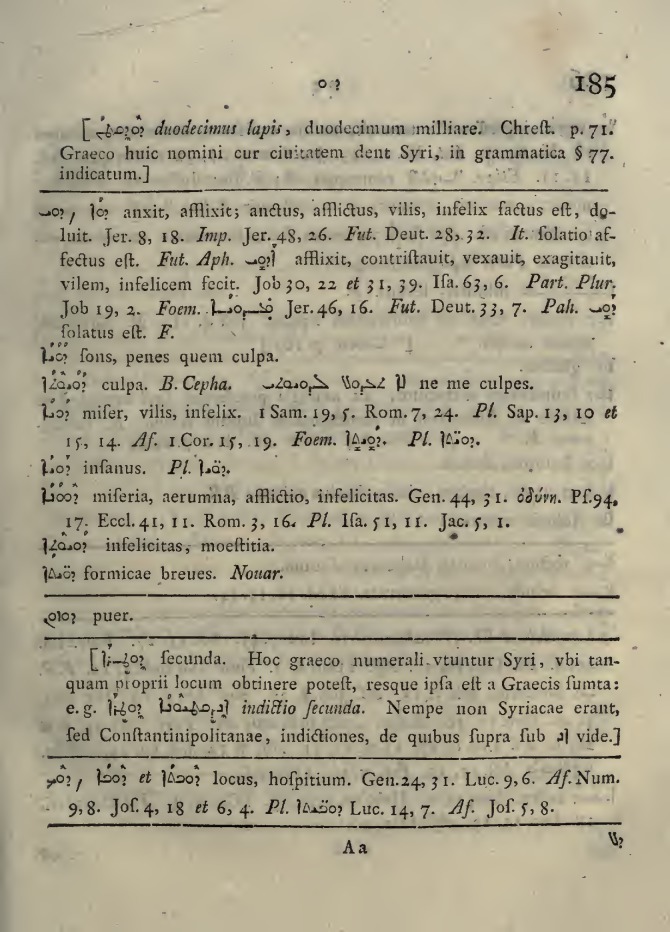 ܘ ܕ
185
[ ܕܘܕܩܛܢ duodecimus lapis, duodecimum milliare. Chreſt. p. 71.
Graeco huic nomini cur ciuitatem dent Syri, in grammatica § 77.
indicatum.]
anxit, afflixit; anctus, afflictus, vilis, infelix factus eſt, do-
luit. Jer. 8, 18. Imp. Jer. 48, 26. Fut. Deut. 28, 32. It. ſolatio af-
fectus eſt. Fut. Aph. afflixit, contriſtauit, vexauit, exagitauit,
vilem, infelicem fecit. Job 30, 22 et 31, 39. Iſa. 63, 6. Part. Plur.
Job 19, 2. Foem. Jer. 46, 16. Fut. Deut. 33, 7. Pah.
ſolatus eſt. F.
ſons, penes quem culpa.
culpa. B. Cepha. ܠܐ ne me culpes.
ܕܘܝܐ miſer, vilis, infelix. 1 Sam. 19, 5. Rom. 7, 24. Pl. Sap. 13, 10 et
15, 14. Aſ. 1 Cor. 15, 19. Foem. Pl.
ܕܘܝܐ inſanus. Pl.
ܕܘܘܢܐ miſeria, aerumna, afflictio, infelicitas. Gen. 44, 31. ὀδύνη. Pſ. 94,
17. Eccl. 41, 11. Rom. 3, 16. Pl. Iſa. 51, 11. Jac. 5, 1.
ܕܘܝܘܬܐ infelicitas, moeſtitia.
formicae breues. Nouar.
puer.
[ ſecunda. Hoc graeco numerali vtuntur Syri, vbi tan-
quam proprii locum obtinere poteſt, resque ipſa eſt a Graecis ſumta:
e. g. indictio ſecunda. Nempe non Syriacae erant,
ſed Conſtantinipolitanae, indictiones, de quibus ſupra ſub ܐܢ vide.]
et locus, hoſpitium. Gen. 24, 31. Luc. 9, 6. Aſ. Num.
9, 8. Joſ. 4, 18 et 6, 4. Pl. Luc. 14, 7. Aſ. Joſ. 5, 8.
A a